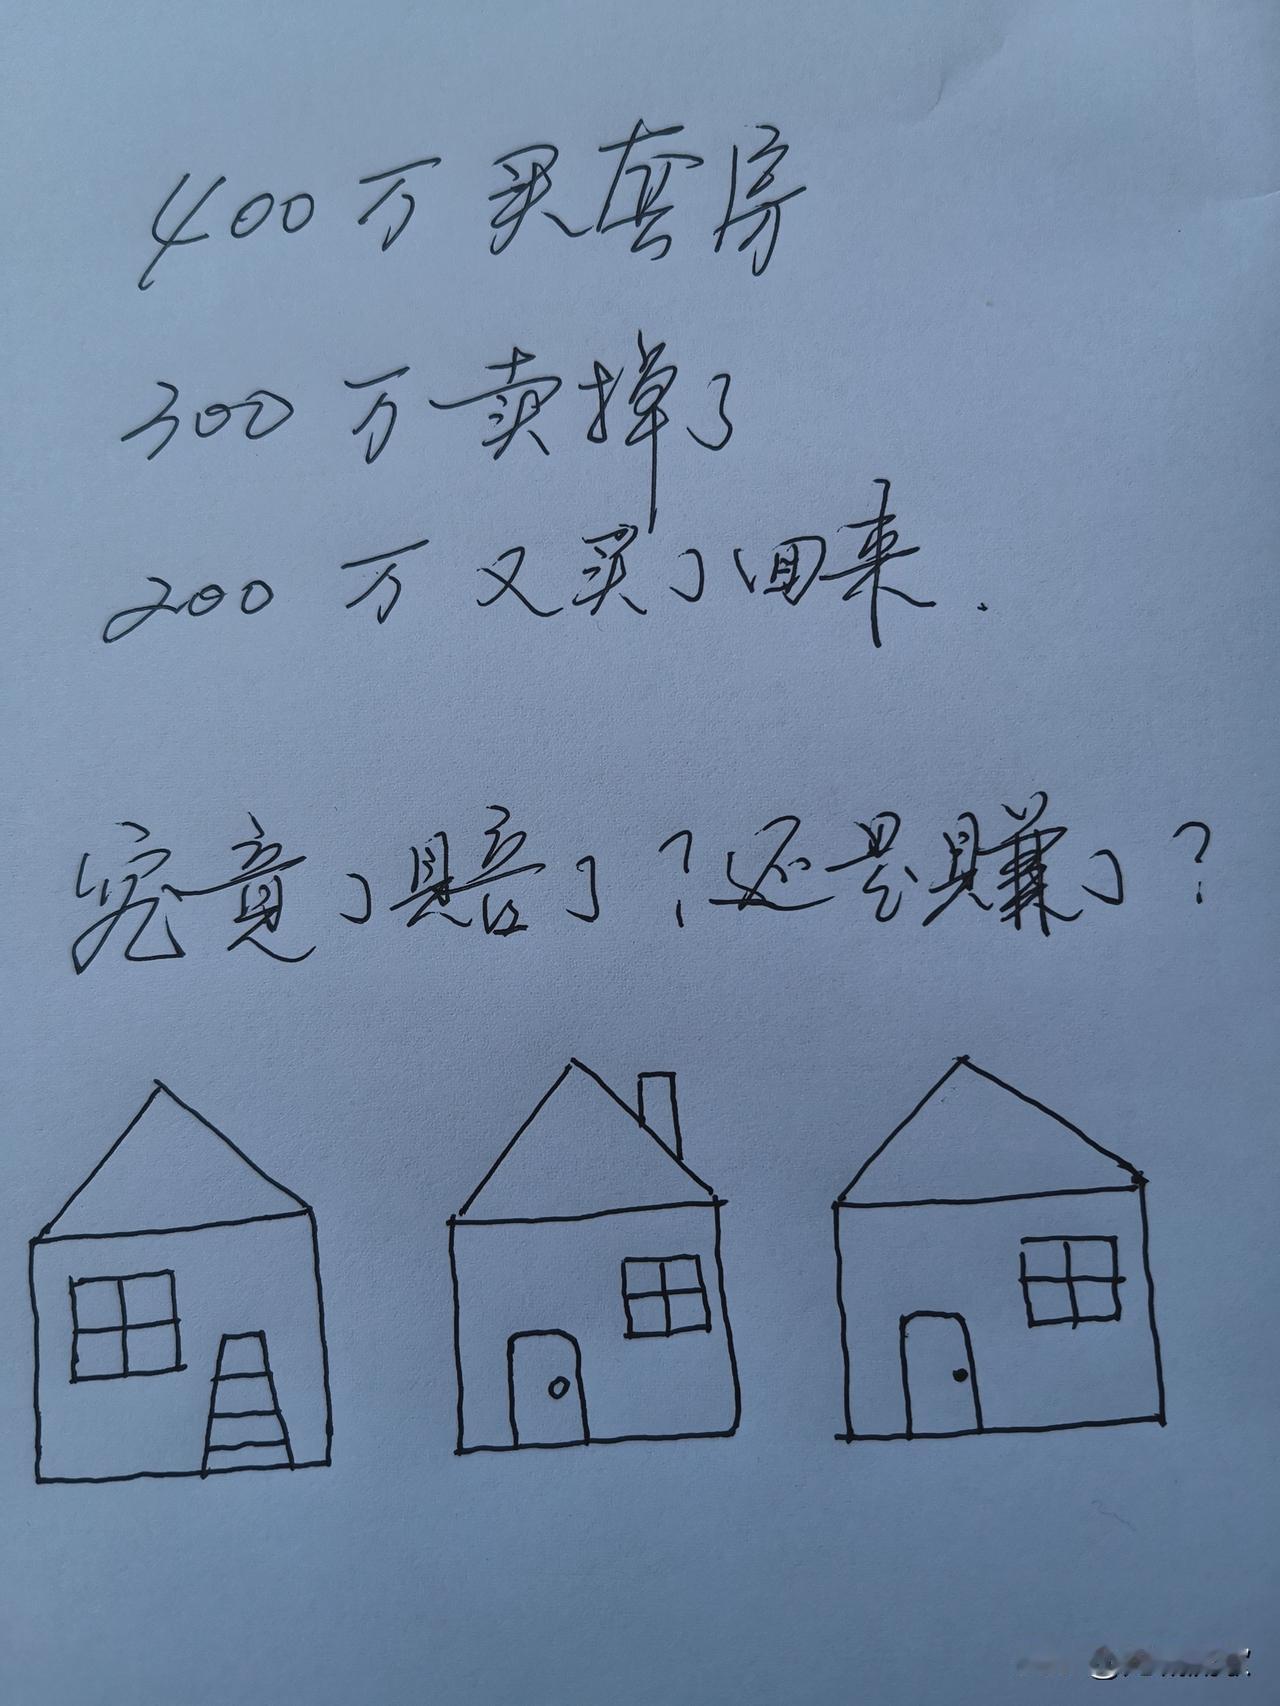 400万买套房
300万卖掉了
200万又买了回来.
究竟了赔了?还是赚了?